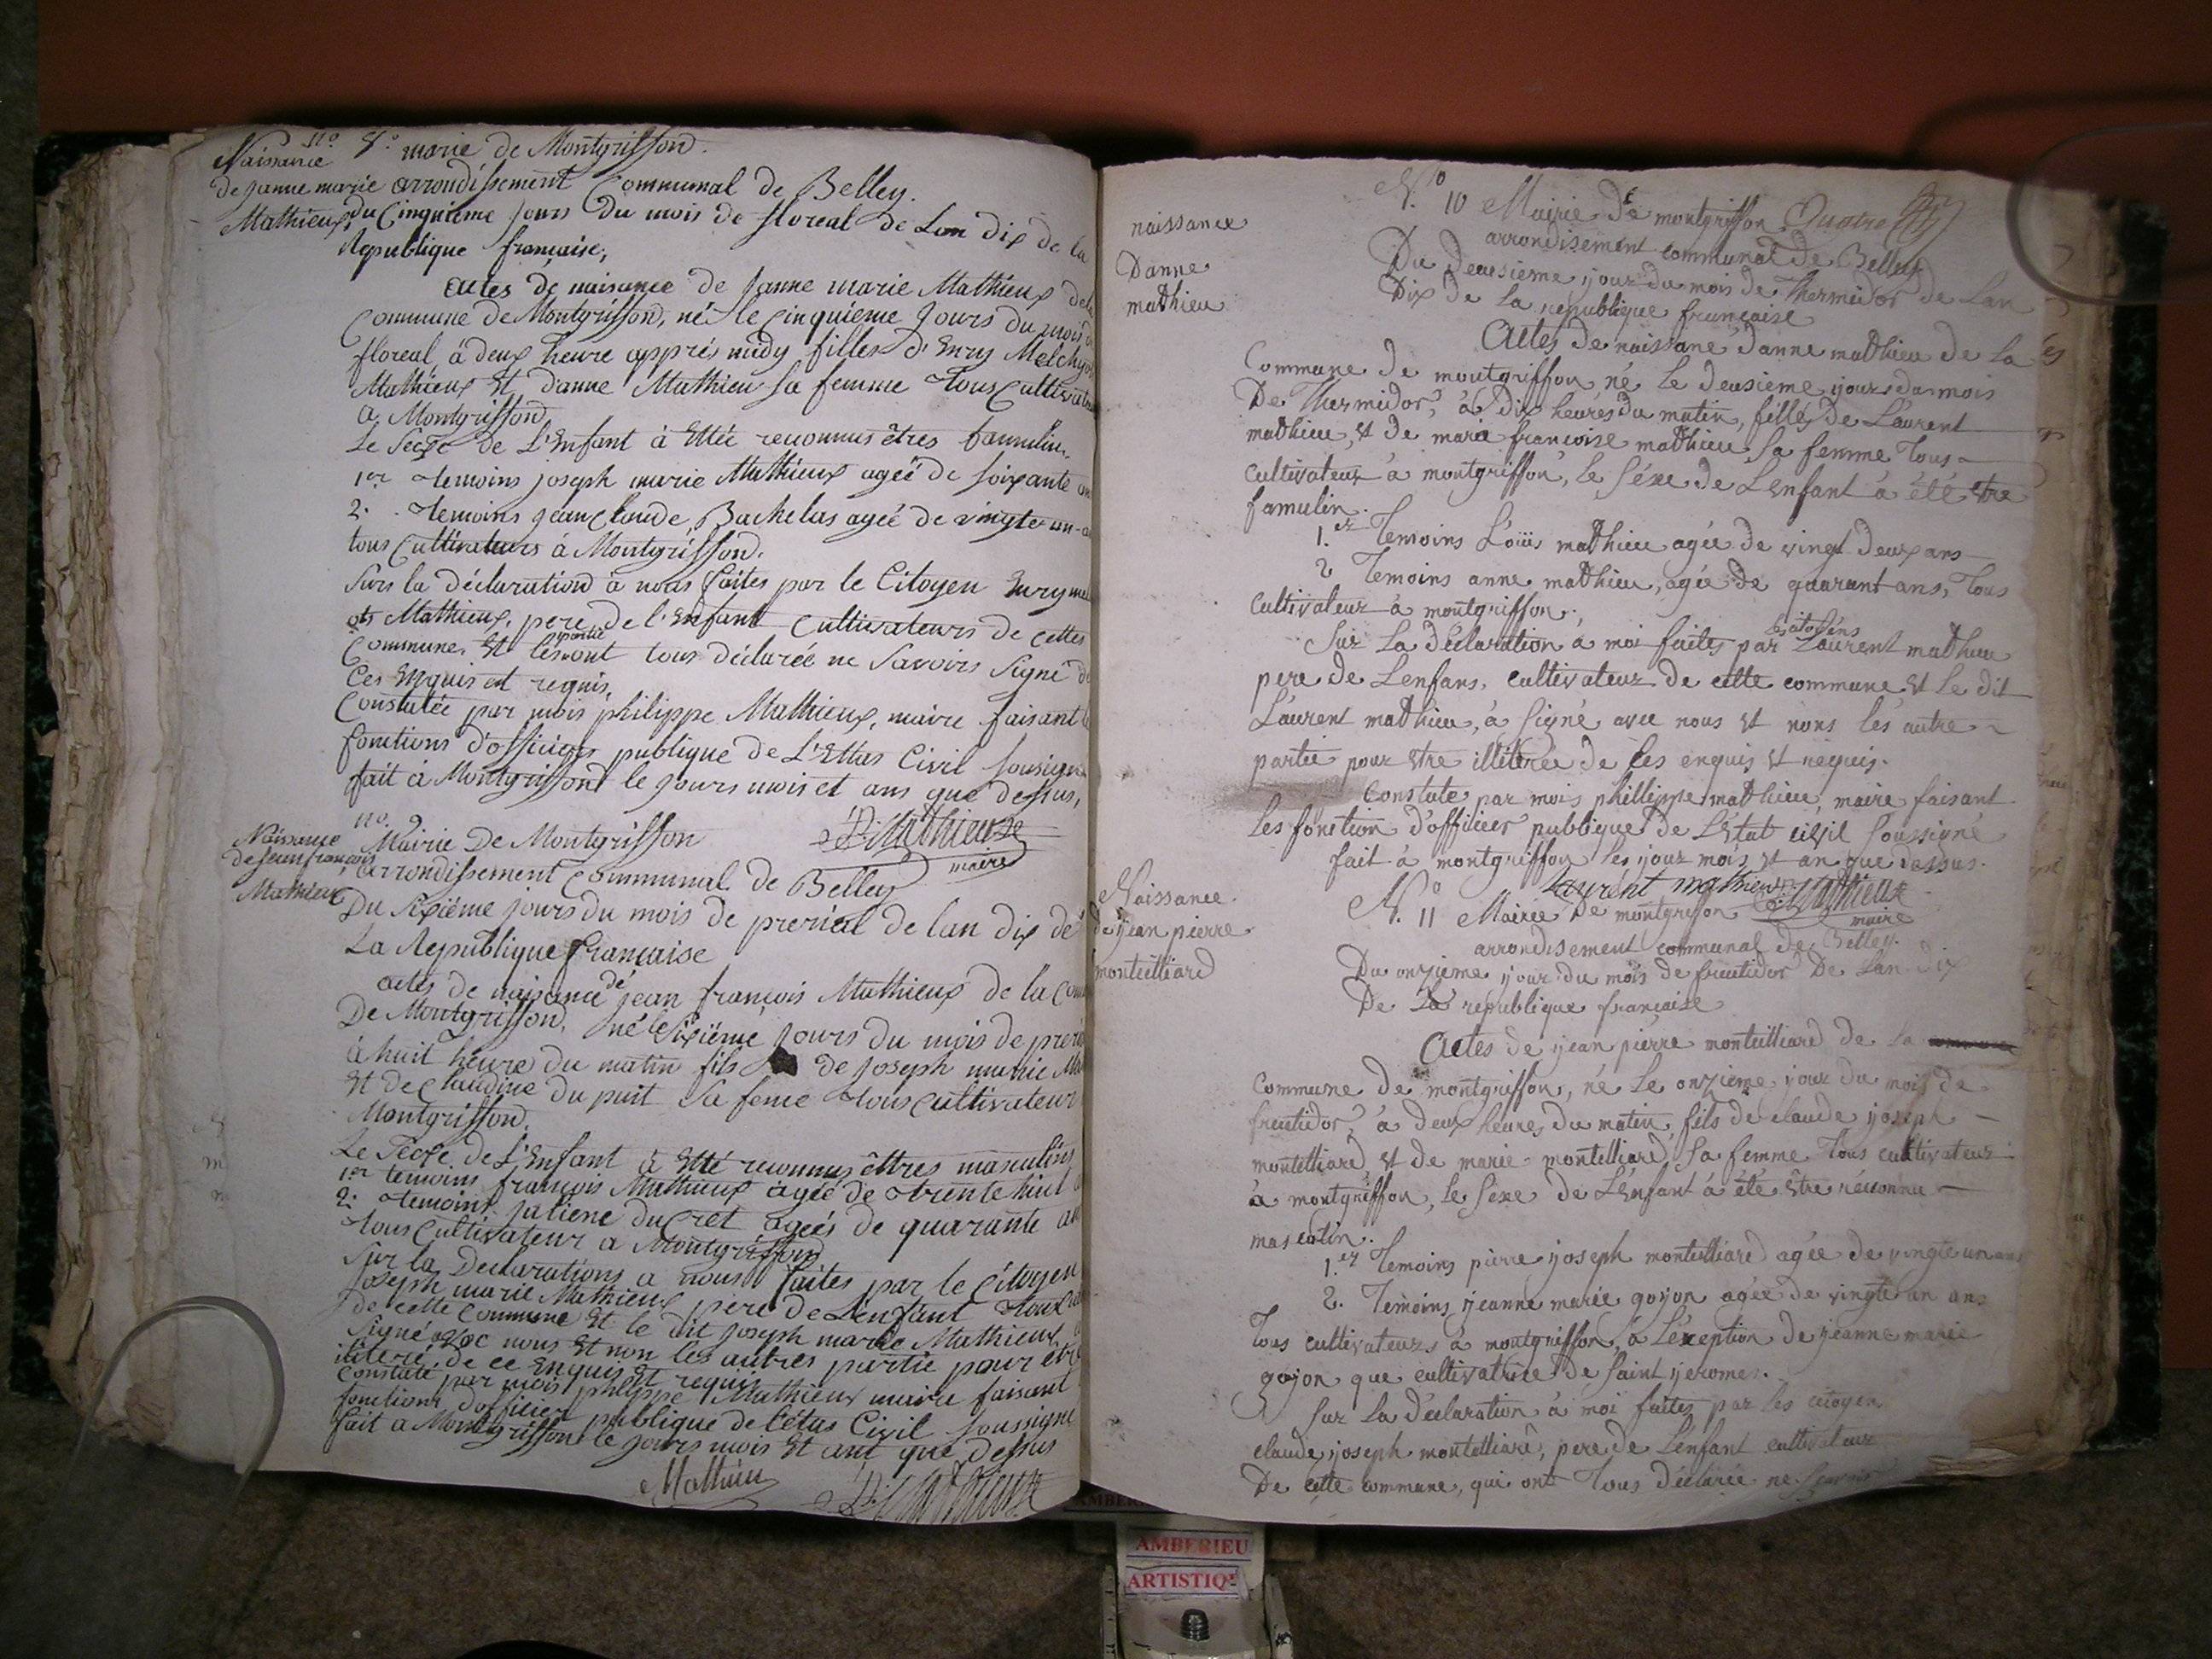 Naissance
de janne marie
Mathieux
no. 8. marie de Montgriffond.
arrondissement Communal de Belley.
du Cinquieme jours du mois de floreal de Lan dix de la
Republique française,
actes de naisance de janne marie Mathieux de la
Commune de Montgriffond, né le Cinquiéme Jours du mois
floreal à deux heure apprés midy filles d'Enry Melchyor
Mathieux Et d'anne Mathieu sa femme tous Cultivat
a Montgriffond
Le Sexe de L'Enfant à Ettée reconnus êtres famulin.
1er temoins joseph marie Mathieux ageé de soixante
2. temoins jean Cloude Bachelas ageé de vingte un
tous Cultivateurs à Montgriffond.
Surs la déclaration à nous faites par le Citoyen Enry
Mathieux, pere de l'Enfant Cultivateurs de cettes
Commune. Et les partie ont tous déclarée ne Savoirs Signé de
Ces Enquis et requis.
Constatée par mois philippe Mathieux, maire faisant
fonctions d'officiers publique de L'Ettas Civil sousigné
fait à Montgriffond le Jours mois et ans que dessus,
P. Mathieux
maire
Naissance
de jean françois
Mathieux
no. 9
Mairie De Montgriffon
arrondissement Communal de Belley
Du Sixiéme jours du mois de preriéal de lan dix dé
La Republique française
actes de naisance de jean françois Mathieux de la Com
De Montgriffond, né le Sixiéme jours du mois de preri
à huit heure du matin fils de joseph marie Ma
Et de Claudine du puit Sa feme tous Cultivateur
Montgriffond.
Le Sexe de L'Enfant à Etté reconnus êttres masculins
1er temoins françois Mathieux ageé de trente huit
2. temoins ducret ageés de quarante an
tous Cultivateur a Montgriffond
Sur la Declarations a nous faites par le Citoyen
joseph marie Mathieux pere de L'enfant
de cette Commune Et le dit joseph marie Mathieux
Signé avec nous Et non les autres partie pour étre
iliteré de ce Enquis Et requis
Constaté par mois philippe Mathieux maire faisant
fonctions dofficier publique de l'étas Civil soussigné
fait a Montgriffond le jours mois Et ant que dessus
Mathieu
P. Mathieux
N.o 10 Mairie De montgriffon Quatre
arrondisement communal de Belley
naissance
Danne
mathieu
Du Deuxieme jour du mois de Thermidor de Lan
Dix de la republique française
Actes de naissane danne mathieu de la
Commune de montgriffon né le deusieme jour du mois
De Thermidor, à dix heures du matin, filles de Laurent
mathieu, et de marie françoise mathieu sa femme tous
cultivateur à montgriffon, le séxe de Lenfant à été etre
famulin.
1.er Temoins Loüis mathieu agée de vingt deux ans
2 Temoins anne mathieu, agée de quarant ans, tous
cultivateur à montgriffon.
Sur La déclaration à moi faites par les citoyéns Laurent mathieu
pere de Lenfans, cultivateur de cette commune et le dit
Laurent mathieu, à signé avec nous et nons les autre
partie pour etre illiterée de Ces enquis et requis.
Constate par mois phillippe mathieu, maire faisant
les fonction d'officier publique de Létat civil soussigné
fait à montgriffon les jour mois et an que dessus.
Laurent mathieu P. Mathieux
maire
N.o 11 Mairie De montgriffon
arrondisement communal de Belley.
Naissance
de jean pierre
montelliard
Du onzieme jour du mois de fructidor De Lan dix
De La republique française
Actes de jean pierre montelliard de la
Commune de montgriffon, né Le onzieme jour du mois de
fructidor, à deux heures du matin, fils de claude joseph
montelliard et de marie montelliard sa femme tous cultivateur
à montgriffon, le sexe de Lenfant à été être réconnu
masculin.
1.er Temoins pierre joseph montelliard agée de vingte un ans
2. Temoins jeanne marie goyon agée de vingte un ans
Tous cultivateurs à montgriffon, à Léxeption de jeanne marie
gojon que cultivatrice de Saint jeromes.
Sur La déclaration à moi faites par les citoyen
claude joseph montelliard, pere de Lenfant cultivateur
De cette commune, qui ont tous déclarée ne savoir
AMBERIEU
ARTISTIQ